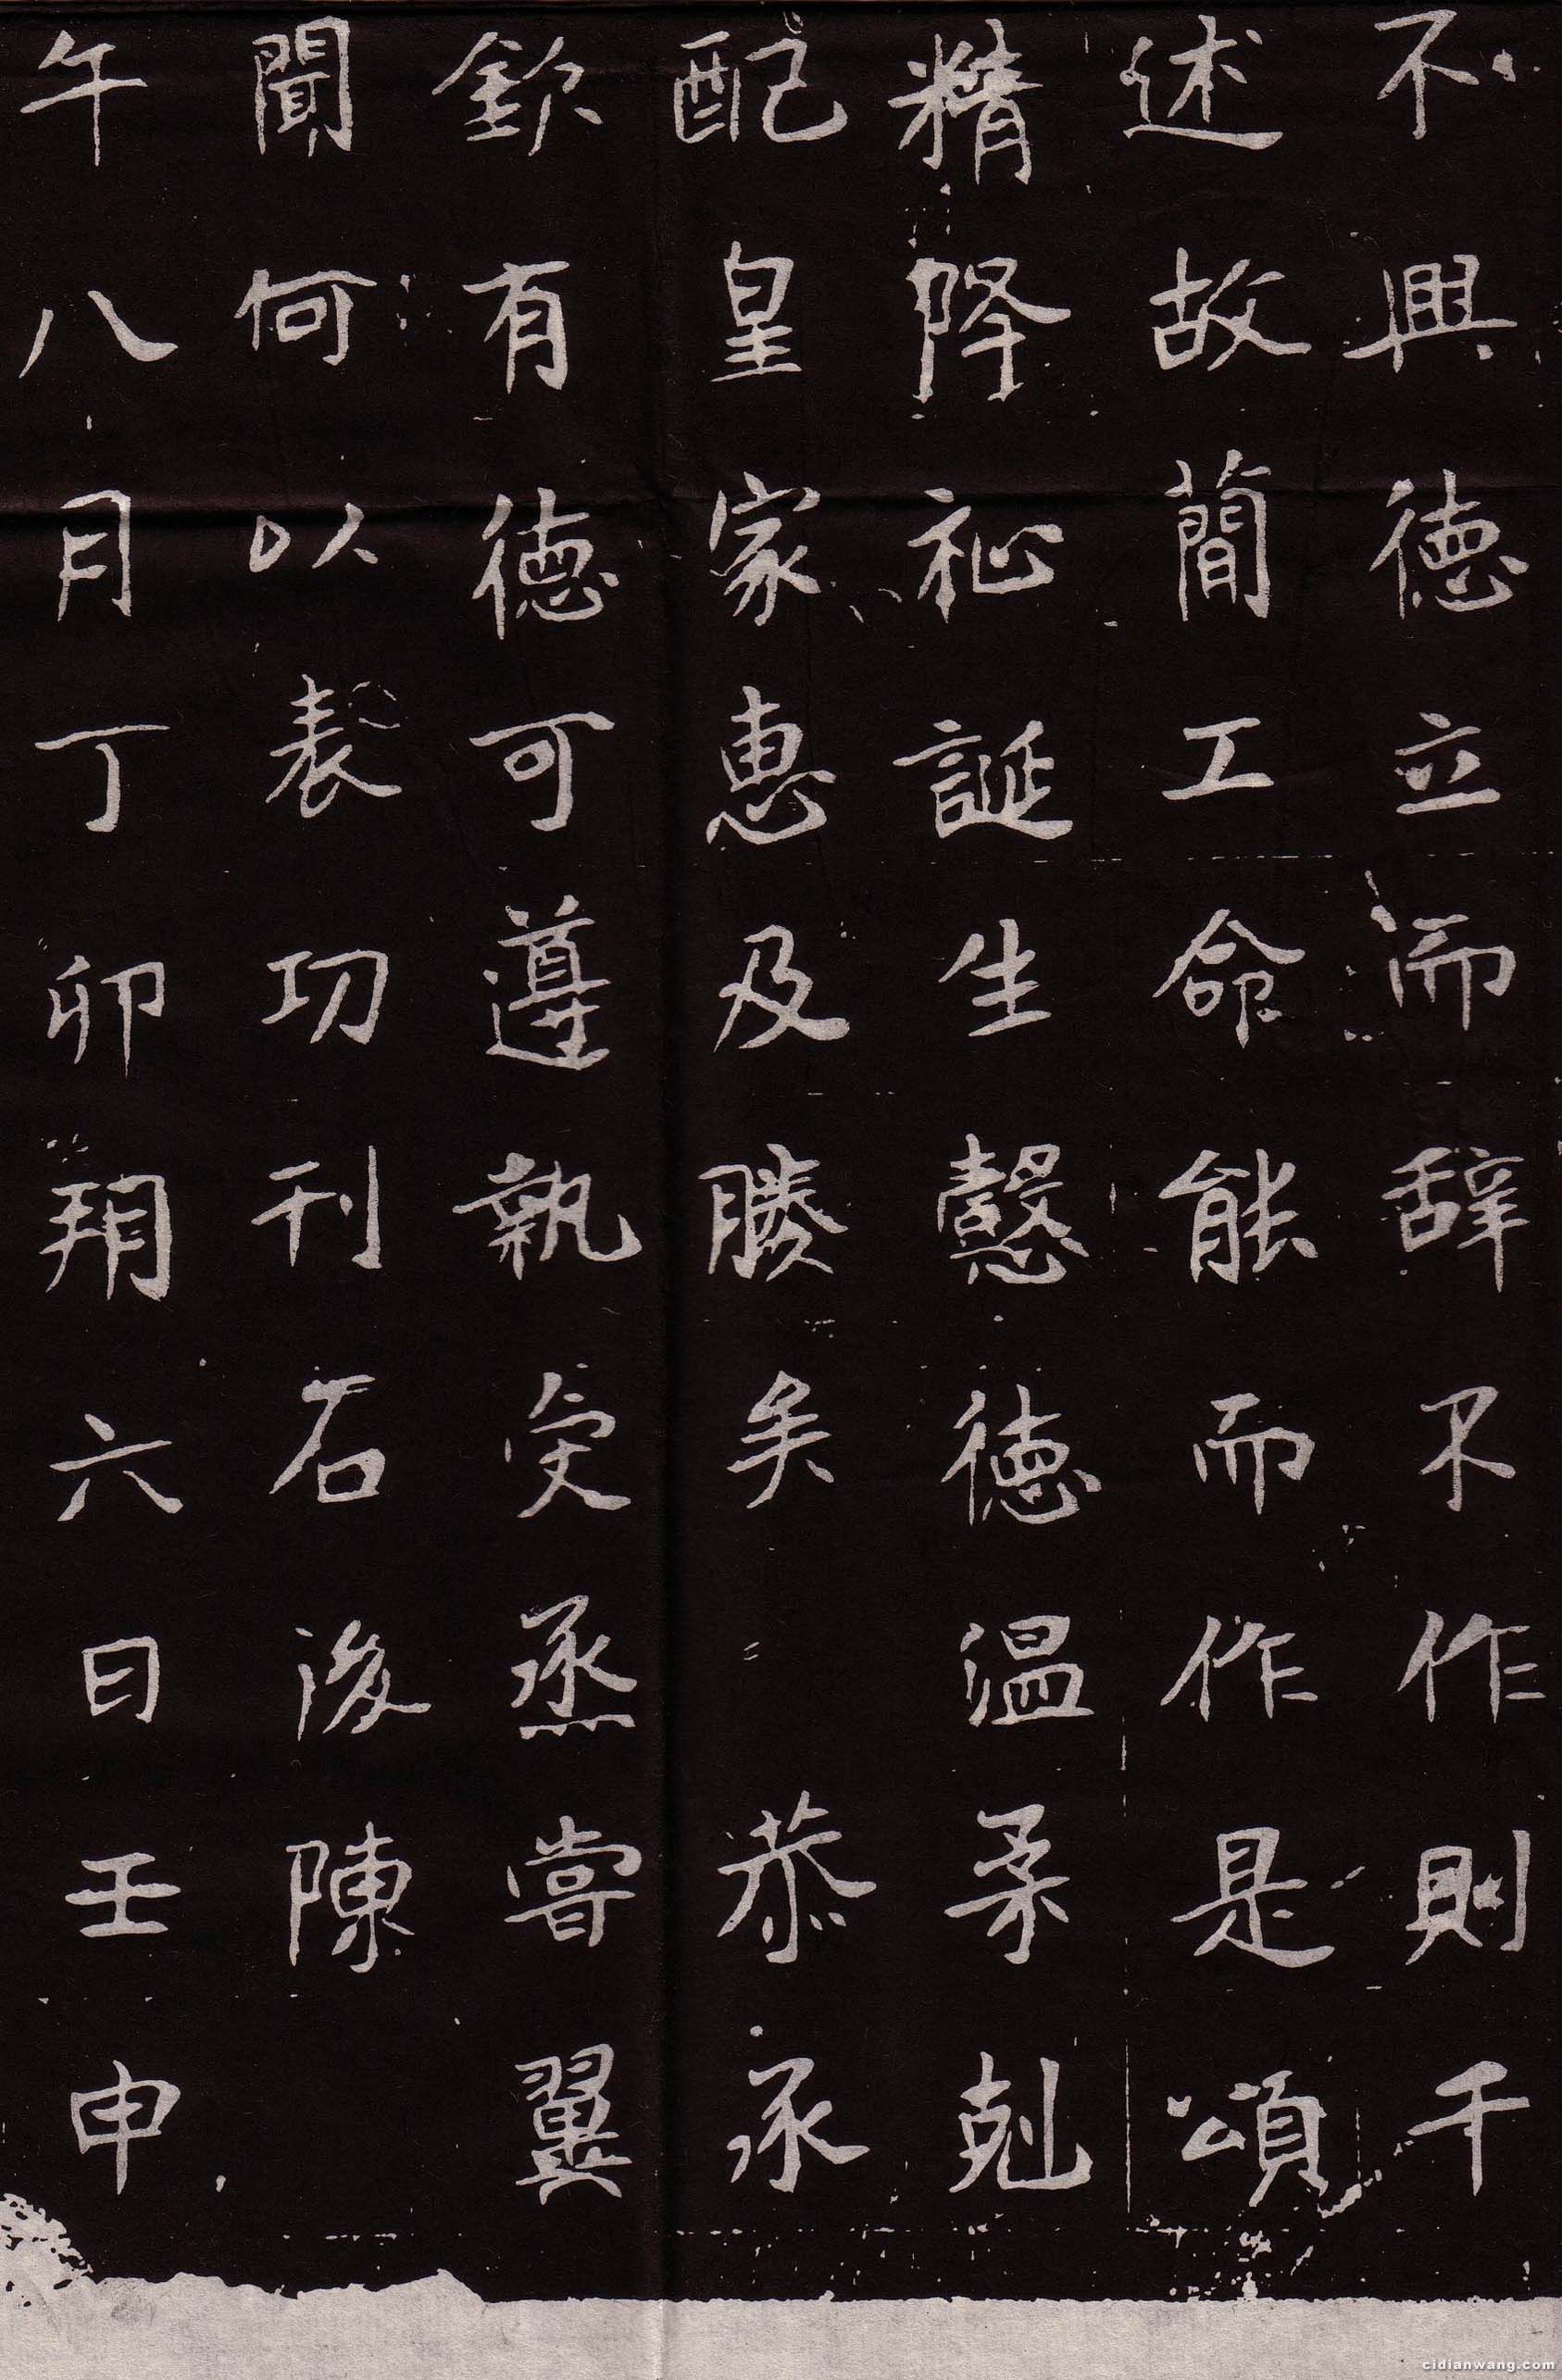 不興德立而辞不作則千
述故簡工命能而作是頌
精降祉誕生慤德温柔剋
配皇家惠及媵矣 恭承
欽有德可遵執受烝嘗翼
聞何以表功刊石後陳
午八月丁卯朔六日壬申
cidianwang.com